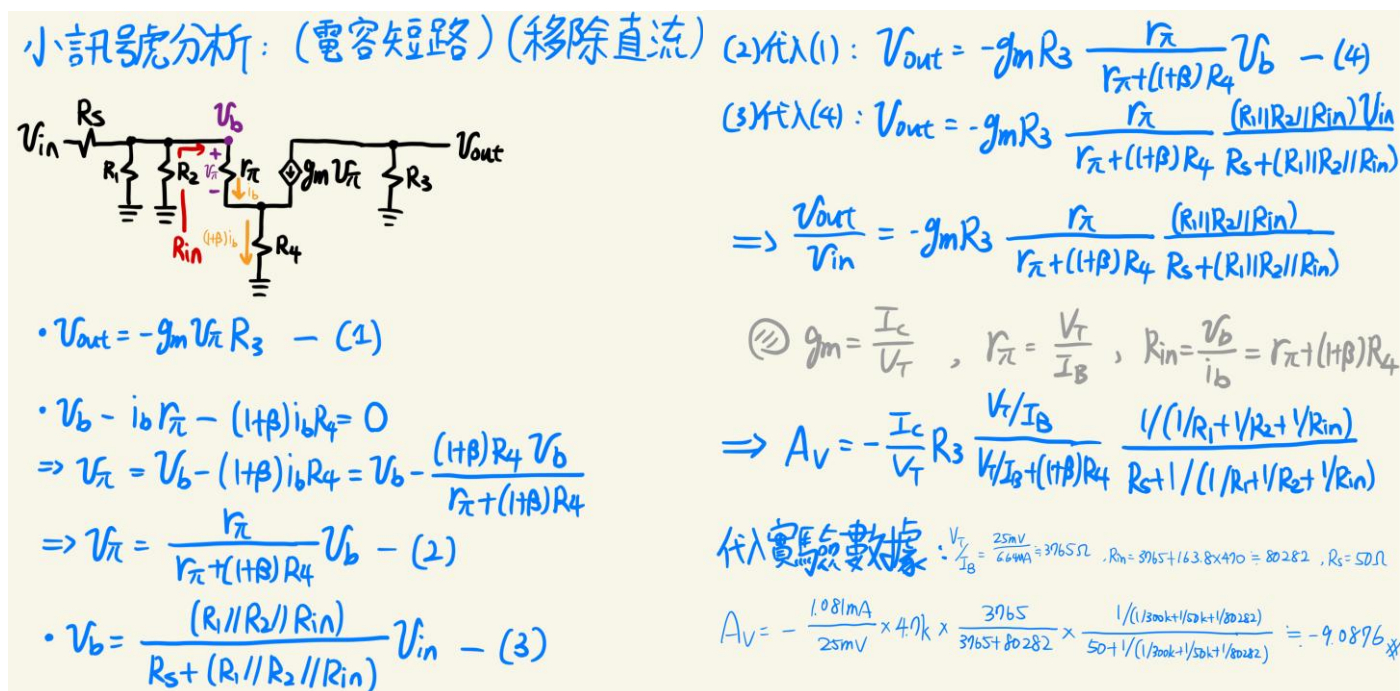 小訊號分析：(電容短路)(移除直流)
Vin Rs R1 R2 Rin Vb + Vπ - rπ ib (1+β)ib R4 gmVπ R3 Vout
• Vout = -gm Vπ R3 — (1)
• Vb - ib rπ - (1+β) ib R4 = 0
=> Vπ = Vb - (1+β) ib R4 = Vb - (1+β)R4 Vb / rπ + (1+β)R4
=> Vπ = rπ / rπ + (1+β)R4 Vb — (2)
• Vb = (R1//R2//Rin) / Rs + (R1//R2//Rin) Vin — (3)
(2)代入(1)：Vout = -gm R3 rπ / rπ + (1+β)R4 Vb — (4)
(3)代入(4)：Vout = -gm R3 rπ / rπ + (1+β)R4 (R1//R2//Rin) Vin / Rs + (R1//R2//Rin)
=> Vout / Vin = -gm R3 rπ / rπ + (1+β)R4 (R1//R2//Rin) / Rs + (R1//R2//Rin)
gm = Ic / VT , rπ = VT / IB , Rin = Vb / ib = rπ + (1+β)R4
=> Av = - Ic / VT R3 VT/IB / VT/IB + (1+β)R4 1/(1/R1+1/R2+1/Rin) / Rs+1/(1/R1+1/R2+1/Rin)
代入實驗數據：VT / IB = 25mV / 6.64mA ≒ 3765Ω , Rin = 3765+163.8×470 ≒ 80282 , Rs = 50Ω
Av = - 1.081mA / 25mV × 4.7k × 3765 / 3765+80282 × 1/(1/300k+1/50k+1/80282) / 50+1/(1/300k+1/50k+1/80282) ≒ -9.0876 ※